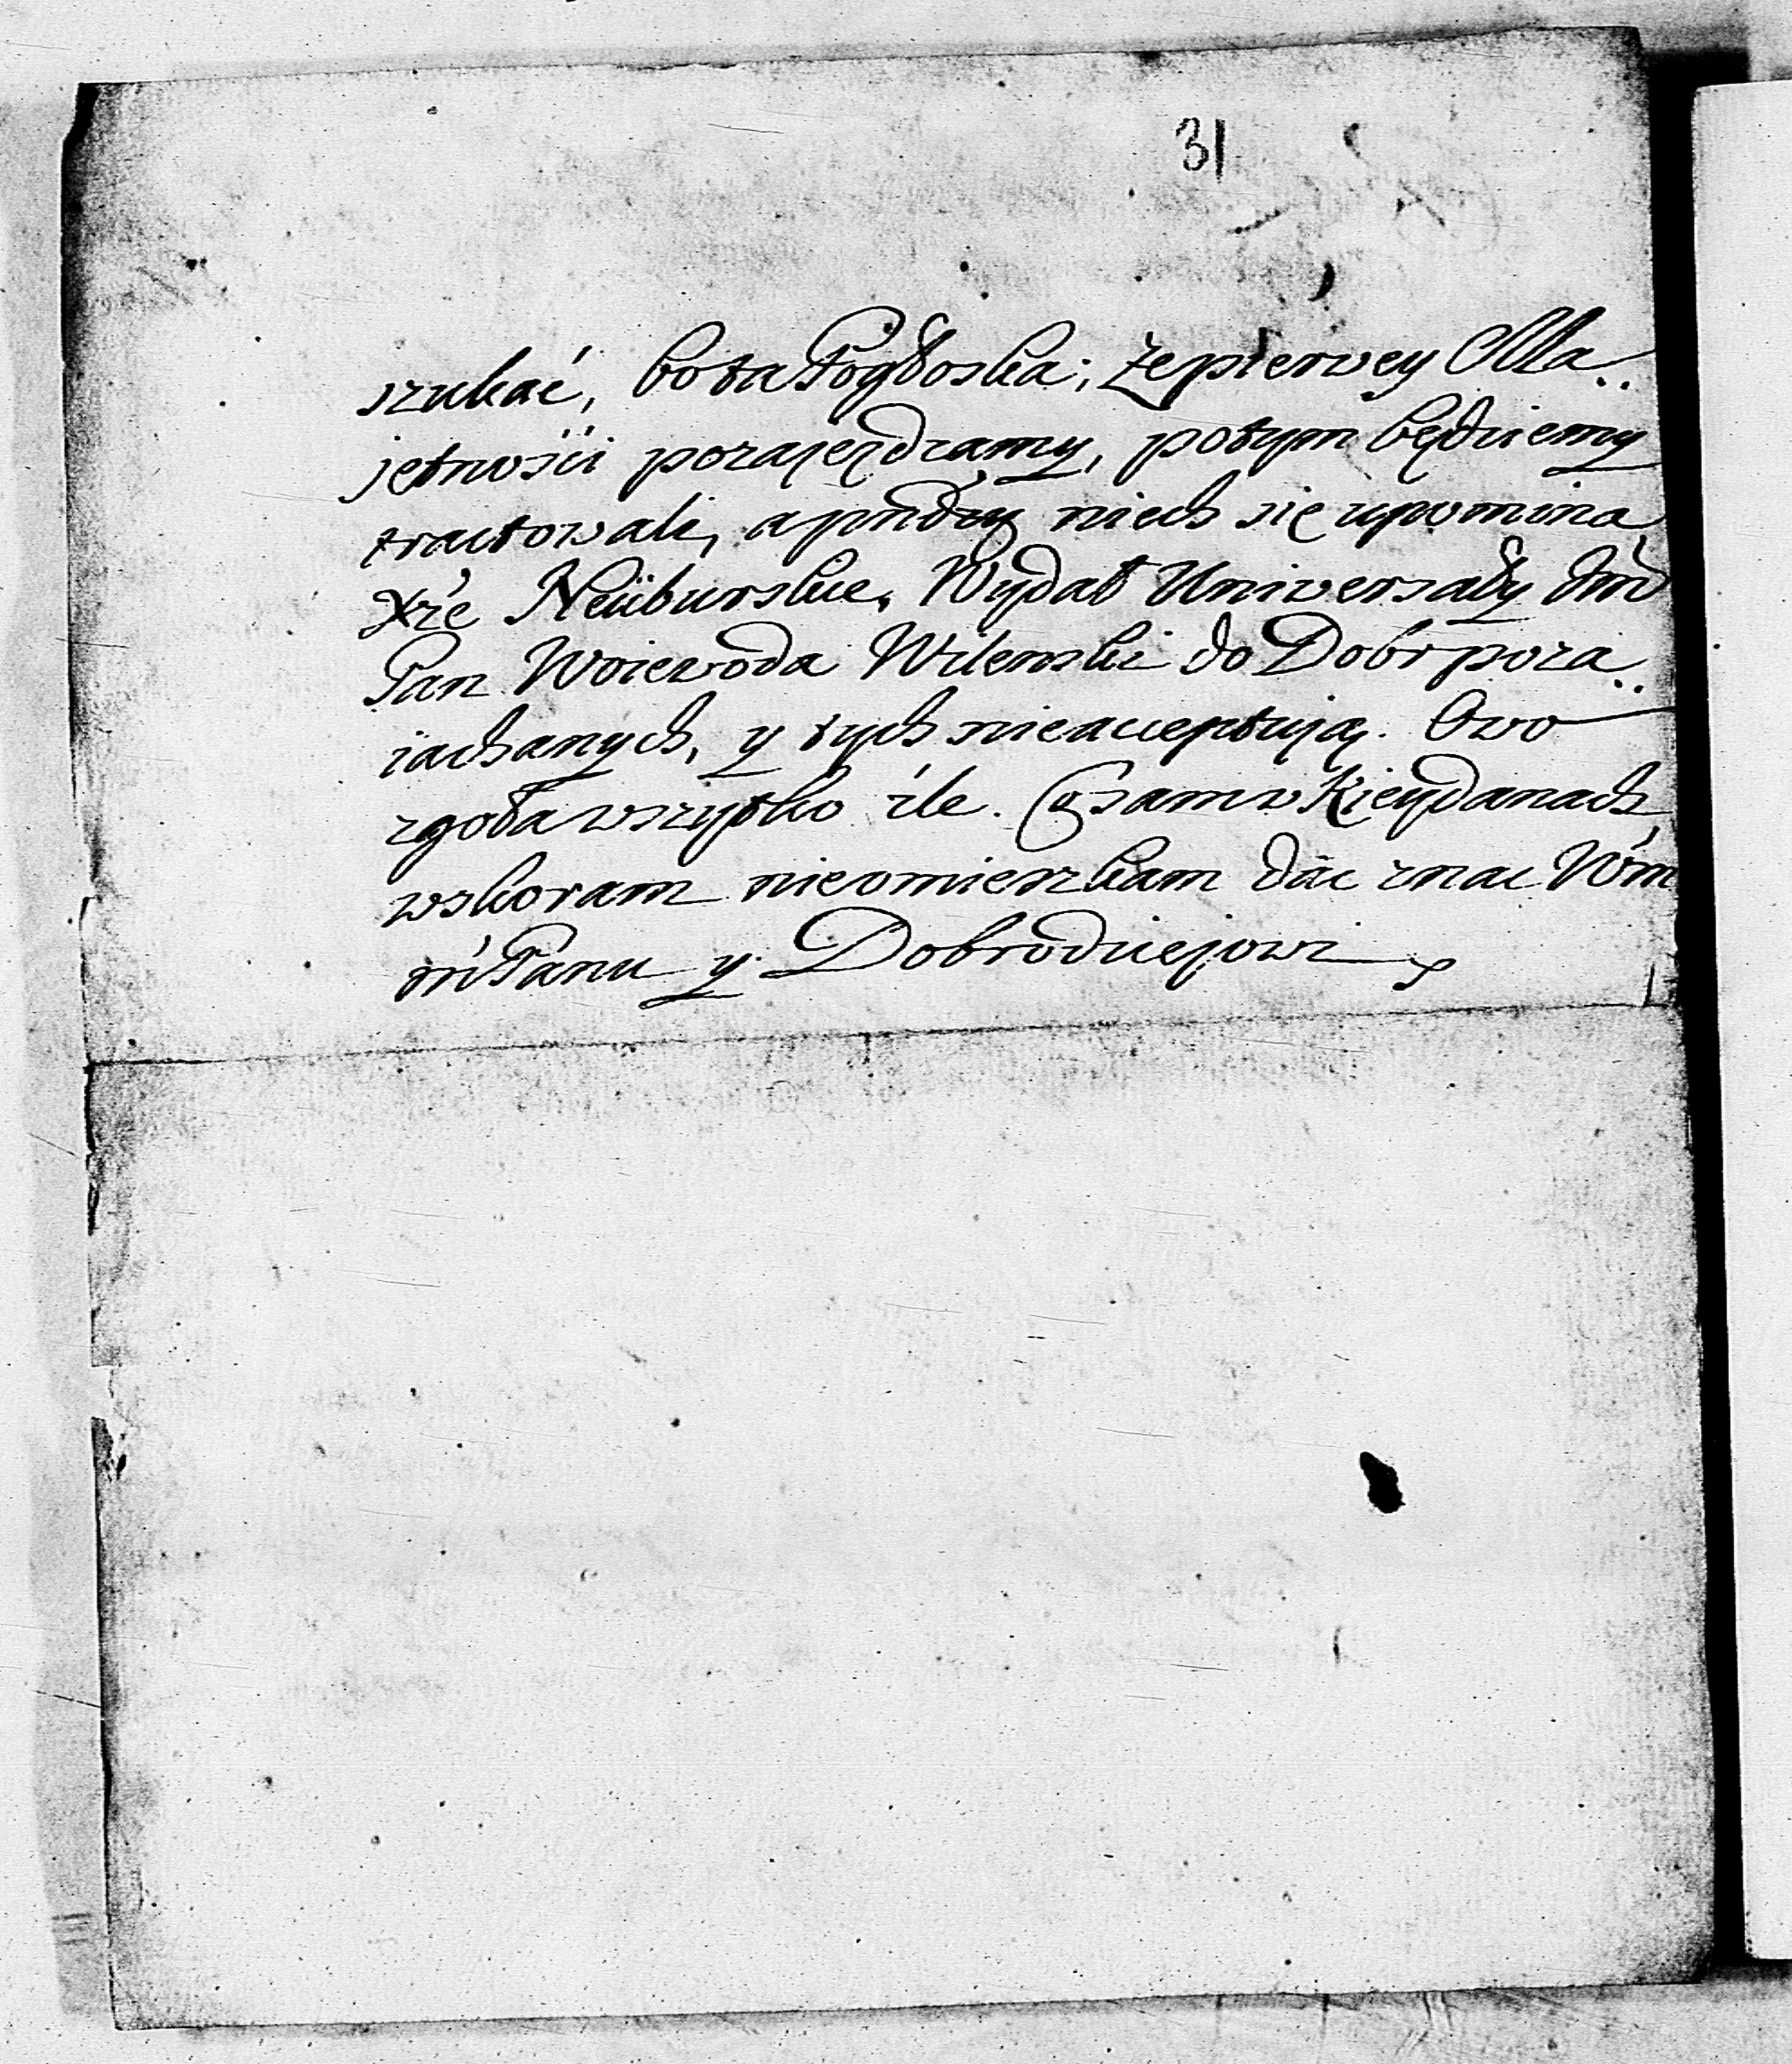 31
szukać, bo ta Pogłoska; że pierwey Ma..
jętności pozajeżdzamy, potym będziemy
tractowali, a pńdzy niech się upomina
Xże Neüburskie. Wydał Uniwersały Jm̃
Pan Woiewoda Wilenski do Dobr poza..
iachanych, y tych nieacceptują. Owo
zgoła wszytko źle. Co sam w Kieydanach
wskoram nieomieszkam dać znac Wm̃
m̃ Panu y Dobrodziejowi